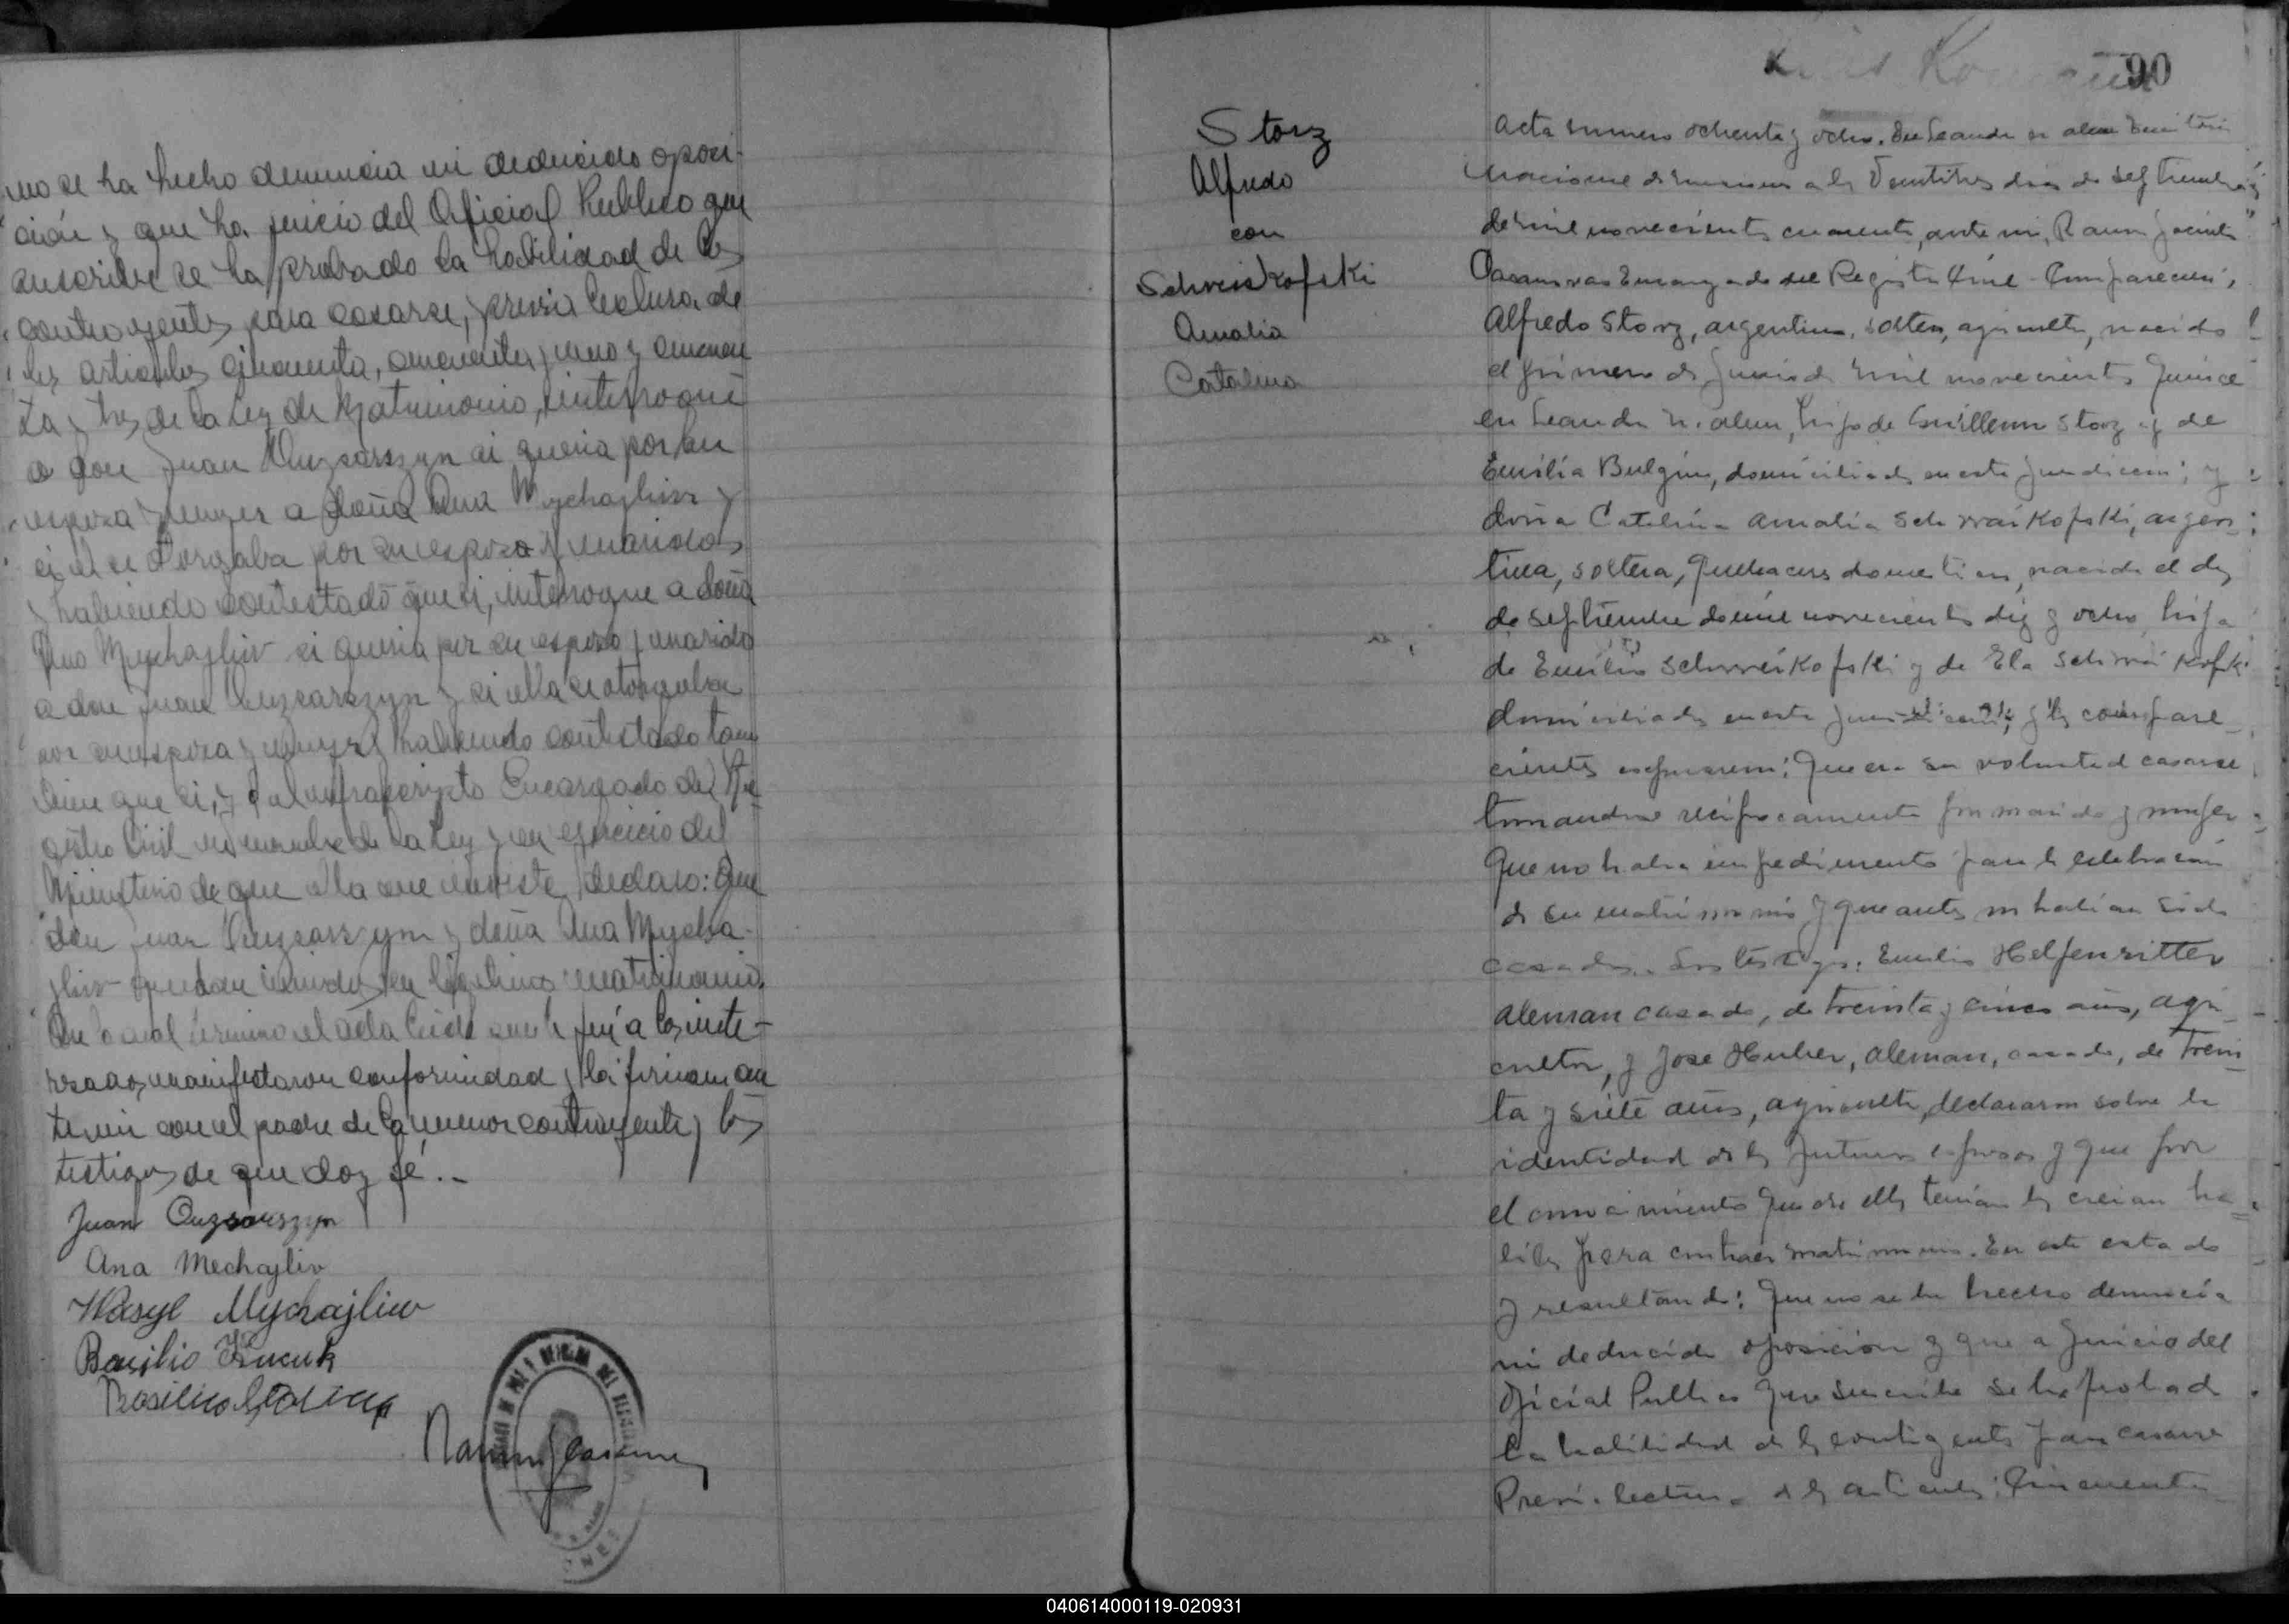 no se ha hecho denuncia ni deducido oposi-
ción y que ha juicio del Oficial Publico que
suscribe se ha probado la habilidad de los
contrayentes para casarse, previa lectura de
los articulos cincuenta, cincuenta y uno y cincuen
ta y tres de la Ley de Matrimonio, interrogué
a don Juan si queria por su
esposa y mujer a doña Ana Mychajliw y
si el se otorgaba por su esposo y marido,
y habiendo contestado que si, interrogue a doña
Ana Mychajliw si queria por su esposo y marido
a don Juan y si ella se otorgaba
por su esposa y mujer y habiendo contestado tam
bien que si, y el infrascripto Encargado del Re-
gistro Civil en nombre de la Ley y en ejercicio del
Ministerio de que ella me inviste, declaro: Que
don Juan y doña Ana Mycha-
jliw quedan unidos en legitimo matrimonio.
Con lo cual termino el acta leida que le fué a los inte-
resados, manifestaron conformidad y la firman an
te mi con el padre de la menor contrayente y los
testigos de que doy fé..-
Juan
Ana Mechajliv
Wasyl Mychajliw
Basilio
Basilio
90
Storz
Alfredo
con
Schweiskofski
Amalia
Catalina
Acta numero ochenta y ocho. En Leandro N. Alem Territorio
Nacional de Misiones a los Veintitres dias de Septiembre
de mil novecientos cuarenta, ante mi, Ramon Jacinto
Casanovas Encargado del Registro Civil - Comparecen:
Alfredo Storz, argentino, soltero, agricultor, nacido
el primero de Junio de mil novecientos Quince
en Leandro N. Alem, hijo de Guillermo Storz y de
Emilia , domiciliados en esta jurisdiccion; y
doña Catalina Amalia Schwaikofski, argen-
tina, soltera, Quehaceres domesticos, nacida el dez
de Septiembre de mil novecientos diez y ocho, hija
de Emilio Schweikofski y de Ela Schwaikofski
domiciliados en esta jurisdiccion; y los compare-
cientes expusieron: Que era su voluntad casarse
tomandose reciprocamente por marido y mujer
Que no habia impedimento para la celebracion
de su matrimonio y que antes no habian sido
casados. Los testigos: Emilio Helfenritter
Aleman casado, de treinta y cinco años, agri-
cultor, y Jose Huber, Aleman, casado, de Trein-
ta y siete años, agricultor, declararon sobre la
identidad de los futuros esposos y que por
el conocimiento que de ellos tenian los creian ha-
biles para contraer matrimonio. En este estado
y resultando: Que no se ha hecho denuncia
ni deducido oposicion y que a Juicio del
Oficial Publico Que suscribe se ha probado
la habilidad de los contrayentes para casarse
Previa lectura de los articulos: Cincuenta
040614000119-020931